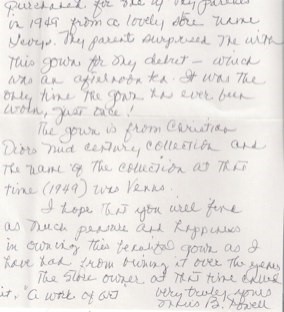 Purchased for me by my parents
in 1949 from a lovely store name
My parents surprised me with
this gown for my debut — which
was an afternoon tea. It was the
only time the gown has ever been
worn, just once!
The gown is from Christian
Diors mid century collection and
the name of the collection at that
time (1949) was Venus.
I hope that you will find
as much pleasure and happiness
in owning this beautiful gown as I
have had from owning it over the years
The store owner at that time called
it, "A work of art
very truly yours
B.